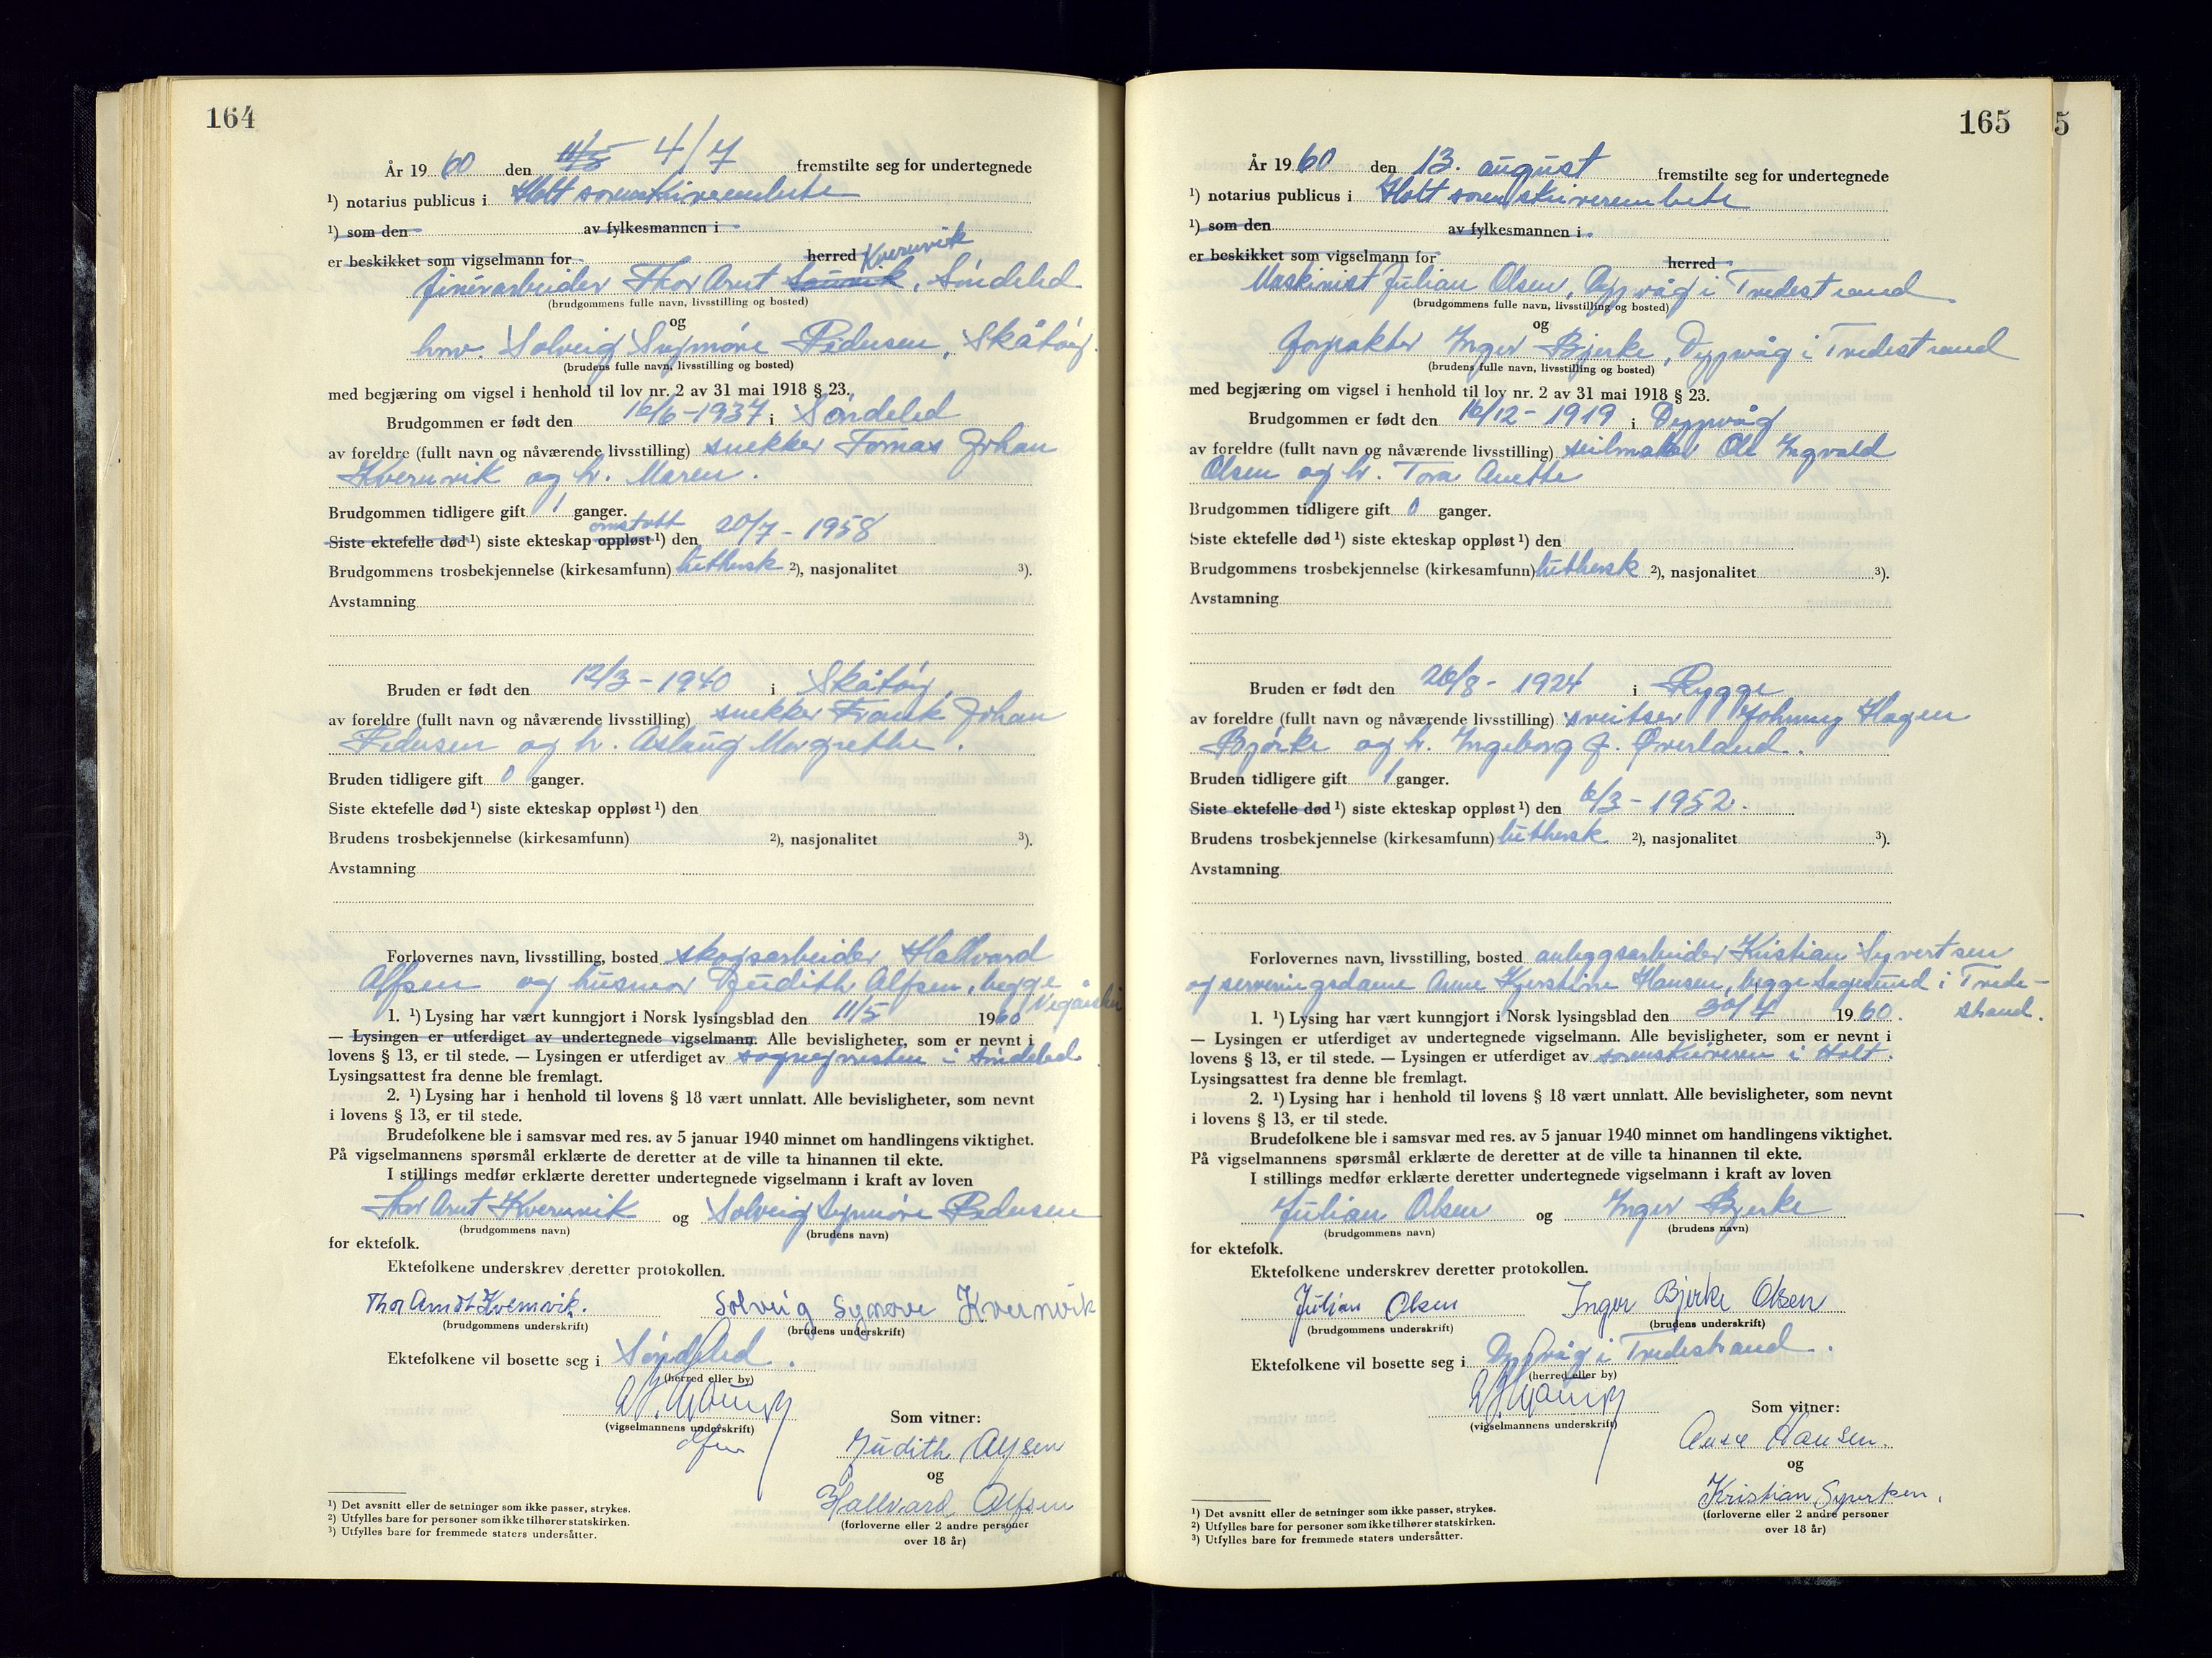 164
År 19 60 den 11/5 4/7 fremstilte seg for undertegnede
¹) notarius publicus i Holt sorenskriverembete
¹) som den av fylkesmannen i
er beskikket som vigselmann for herred Kvernvik
finérarbeider Thor Arnt Saurik, Söndeled
(brudgommens fulle navn, livsstilling og bosted)
og
hmv. Solveig Synnöve Pedersen, Skåtöy.
(brudens fulle navn, livsstilling og bosted)
med begjæring om vigsel i henhold til lov nr. 2 av 31 mai 1918 § 23.
Brudgommen er født den 16/6-1937 i Söndeled
av foreldre (fullt navn og nåværende livsstilling) snekker Tomas Johan
Kvernvik og h. Maren.
Brudgommen tidligere gift 1 ganger.
omstøtt
Siste ektefelle død ¹) siste ekteskap oppløst ¹) den 20/7-1958
Brudgommens trosbekjennelse (kirkesamfunn) luthersk ²), nasjonalitet ³).
Avstamning
Bruden er født den 12/3-1940 i Skåtöy
av foreldre (fullt navn og nåværende livsstilling) snekker Frank Johan
Pedersen og h. Aslaug Margrethe.
Bruden tidligere gift 0 ganger.
Siste ektefelle død ¹) siste ekteskap oppløst ¹) den
Brudens trosbekjennelse (kirkesamfunn) ²), nasjonalitet ³).
Avstamning
Forlovernes navn, livsstilling, bosted skogsarbeider Hallvard
Alfsen og husmor Judith Alfsen, begge
Vegårshei
1. ¹) Lysing har vært kunngjort i Norsk lysingsblad den 11/5 1960
— Lysingen er utferdiget av undertegnede vigselmann. Alle bevisligheter, som er nevnt i
lovens § 13, er til stede. — Lysingen er utferdiget av sognepresten i Söndeled
Lysingsattest fra denne ble fremlagt.
2. ¹) Lysing har i henhold til lovens § 18 vært unnlatt. Alle bevisligheter, som nevnt
i lovens § 13, er til stede.
Brudefolkene ble i samsvar med res. av 5 januar 1940 minnet om handlingens viktighet.
På vigselmannens spørsmål erklærte de deretter at de ville ta hinannen til ekte.
I stillings medfør erklærte deretter undertegnede vigselmann i kraft av loven
Thor Arnt Kvernvik og Solveig Synnöve Pedersen
(brudgommens navn) (brudens navn)
for ektefolk.
Ektefolkene underskrev deretter protokollen.
Thor Arndt Kvernvik. Solveig Synnøve Kvernvik
(brudgommens underskrift) (brudens underskrift)
Ektefolkene vil bosette seg i Söndeled.
(herred eller by)
(vigselmannens underskrift)
Som vitner:
Judith Alfsen
og
Hallvard Alfsen
(forloverne eller 2 andre personer
over 18 år)
¹) Det avsnitt eller de setninger som ikke passer, strykes.
²) Utfylles bare for personer som ikke tilhører statskirken.
³) Utfylles bare for fremmede staters undersåtter.
165
5
År 19 60 den 13. august fremstilte seg for undertegnede
¹) notarius publicus i Holt sorenskriverembete
¹) som den av fylkesmannen i
er beskikket som vigselmann for herred
Maskinist Julian Olsen, Dypvåg i Tvedestrand
(brudgommens fulle navn, livsstilling og bosted)
og
forpakter Inger Bjerke, Dypvåg i Tvedestrand
(brudens fulle navn, livsstilling og bosted)
med begjæring om vigsel i henhold til lov nr. 2 av 31 mai 1918 § 23.
Brudgommen er født den 16/12-1919 i Dypvåg
av foreldre (fullt navn og nåværende livsstilling) seilmaker Ole Ingvald
Olsen og h. Tora Anette
Brudgommen tidligere gift 0 ganger.
Siste ektefelle død ¹) siste ekteskap oppløst ¹) den
Brudgommens trosbekjennelse (kirkesamfunn) luthersk ²), nasjonalitet ³).
Avstamning
Bruden er født den 26/8- 1924 i Rygge
av foreldre (fullt navn og nåværende livsstilling) sveitser Johnny Hagen
Bjørke og h. Ingeborg f. Øverland.
Bruden tidligere gift 1 ganger.
Siste ektefelle død ¹) siste ekteskap oppløst ¹) den 6/3-1952.
Brudens trosbekjennelse (kirkesamfunn) luthersk ²), nasjonalitet ³).
Avstamning
Forlovernes navn, livsstilling, bosted anleggsarbeider Kristian Syvertsen
og serveringsdame Anne Kjerstine Hansen, begge Sagesund i Tvede-
strand.
1. ¹) Lysing har vært kunngjort i Norsk lysingsblad den 30/4 1960.
— Lysingen er utferdiget av undertegnede vigselmann. Alle bevisligheter, som er nevnt i
lovens § 13, er til stede. — Lysingen er utferdiget av sorenskriveren i Holt.
Lysingsattest fra denne ble fremlagt.
2. ¹) Lysing har i henhold til lovens § 18 vært unnlatt. Alle bevisligheter, som nevnt
i lovens § 13, er til stede.
Brudefolkene ble i samsvar med res. av 5 januar 1940 minnet om handlingens viktighet.
På vigselmannens spørsmål erklærte de deretter at de ville ta hinannen til ekte.
I stillings medfør erklærte deretter undertegnede vigselmann i kraft av loven
Julian Olsen og Inger Bjerke
(brudgommens navn) (brudens navn)
for ektefolk.
Ektefolkene underskrev deretter protokollen.
Julian Olsen Inger Bjerke Olsen
(brudgommens underskrift) (brudens underskrift)
Ektefolkene vil bosette seg i Dypvåg i Tvedestrand.
(herred eller by)
(vigselmannens underskrift)
Som vitner:
Anne Hansen.
og
Kristian Syvertsen.
(forloverne eller 2 andre personer
over 18 år)
¹) Det avsnitt eller de setninger som ikke passer, strykes.
²) Utfylles bare for personer som ikke tilhører statskirken.
³) Utfylles bare for fremmede staters undersåtter.